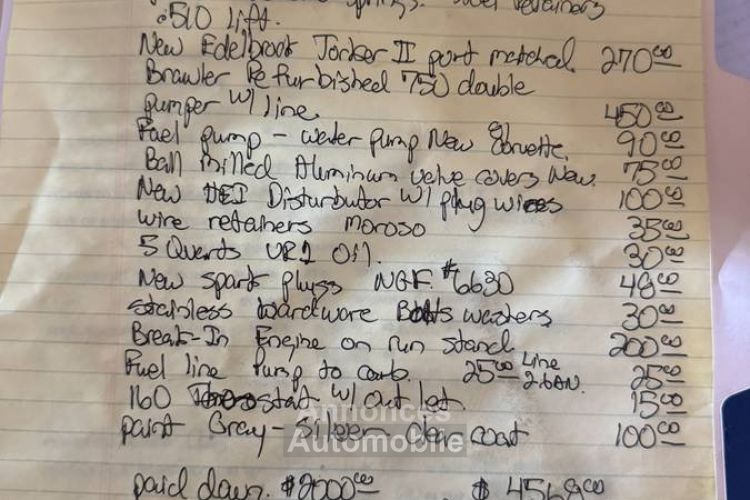 springs. steel retainers
.510 lift.
New Edelbrock Torker II port matched. 270.00
Brawler Refurbished 750 double
pumper w/ line 450.00
Fuel pump - water pump New Corvette. 90.00
Ball Milled Aluminum valve covers New. 75.00
New HEI Disturbutor w/ plug wires 100.00
wire retainers moroso 35.00
5 Quarts VR1 Oil. 30.00
New spark plugs NGF. #6630 48.00
stainless hardware Bolts washers 30.00
Break-In Engine on run stand. 200.00
Fuel line Pump to carb. 25.00 Line 25.00
160 w/ outlet. 15.00
paint Gray - Silver clear coat 100.00
paid down. $2000.00 $ 4568.00
Annonces
Automobile